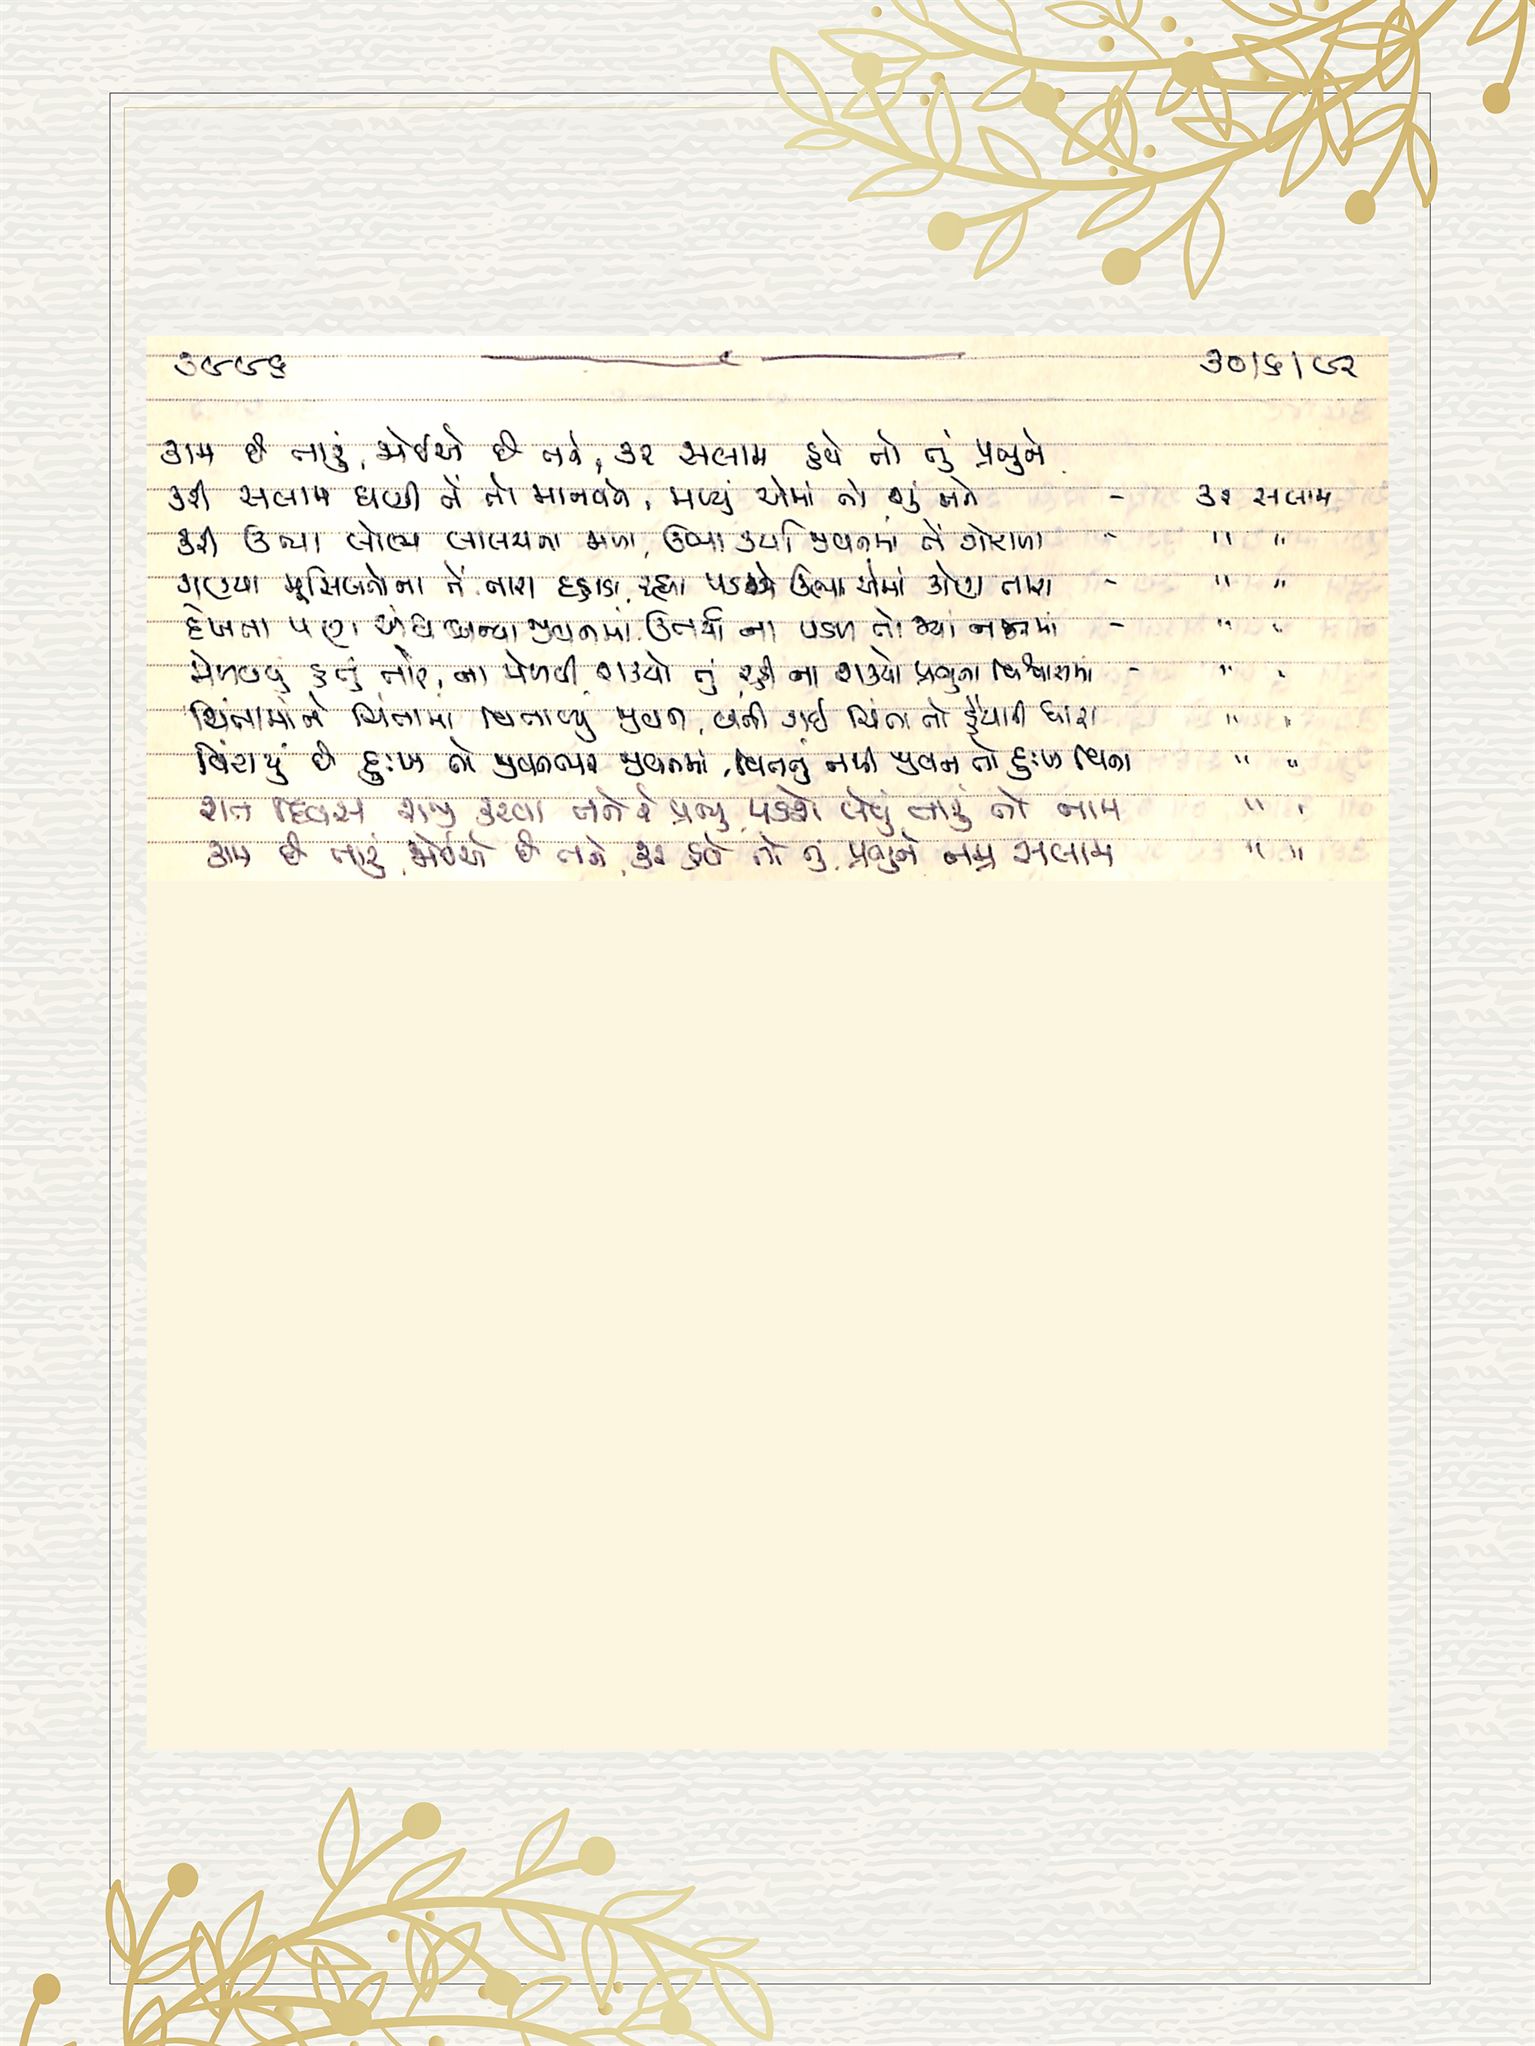 ૩૯૯૬ ૩૦/૬/૯૨
કામ છે તારું, જોઈએ છે તને, કર સલામ હવે તો તું પ્રભુને
કરી સલામ ઘણી તેં તો માનવને, મળ્યું એમાં તો શું તને - કર સલામ
કરી ઉભા લોભ લાલચના મળા, ઉભા કર્યા જીવનમાં તેં ગોટાળા - " "
ગણ્યા મુસિબતોના તેં તારા દહાડા, રહ્યા પડખે ઉભા એમાં કોણ તારા - " "
દેખતા પણ અંધ બન્યા જીવનમાં ઉતર્યા ના પડળ તો જ્યાં નજરમાં - " "
મેળવવું હતું તારે, ના મેળવી શક્યો તું રહી ના શક્યો પ્રભુના વિશ્વાસમાં - " "
ચિંતામાંને ચિંતામાં વિતાવ્યું જીવન, બની ગઈ ચિંતા તો હૈયાની ધારા " "
વિંટાયું છે દુઃખ તો જીવનભર જીવનમાં, વિતતું નથી જીવન તો દુઃખ વિના " "
રાત દિવસ રાજી કરવા તને રે પ્રભુ, પડશે લેવું તારું તો નામ " "
કામ છે તારું, જોઈએ છે તને, કર હવે તો તું પ્રભુને નમ્ર સલામ " "